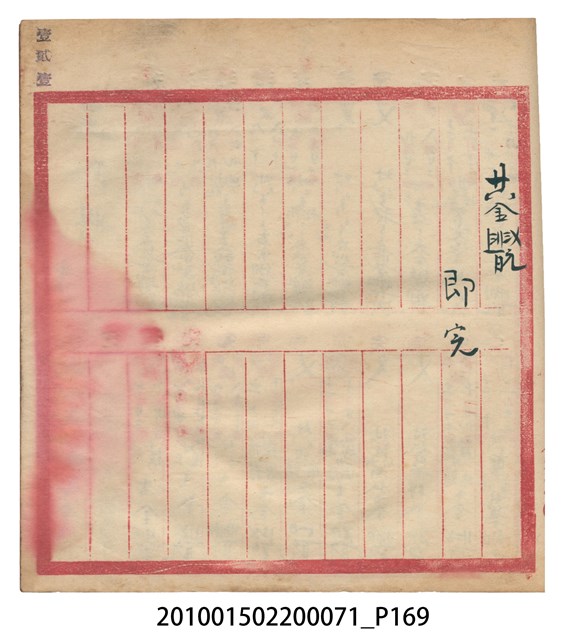 壹貳壹
即完
201001502200071_P169